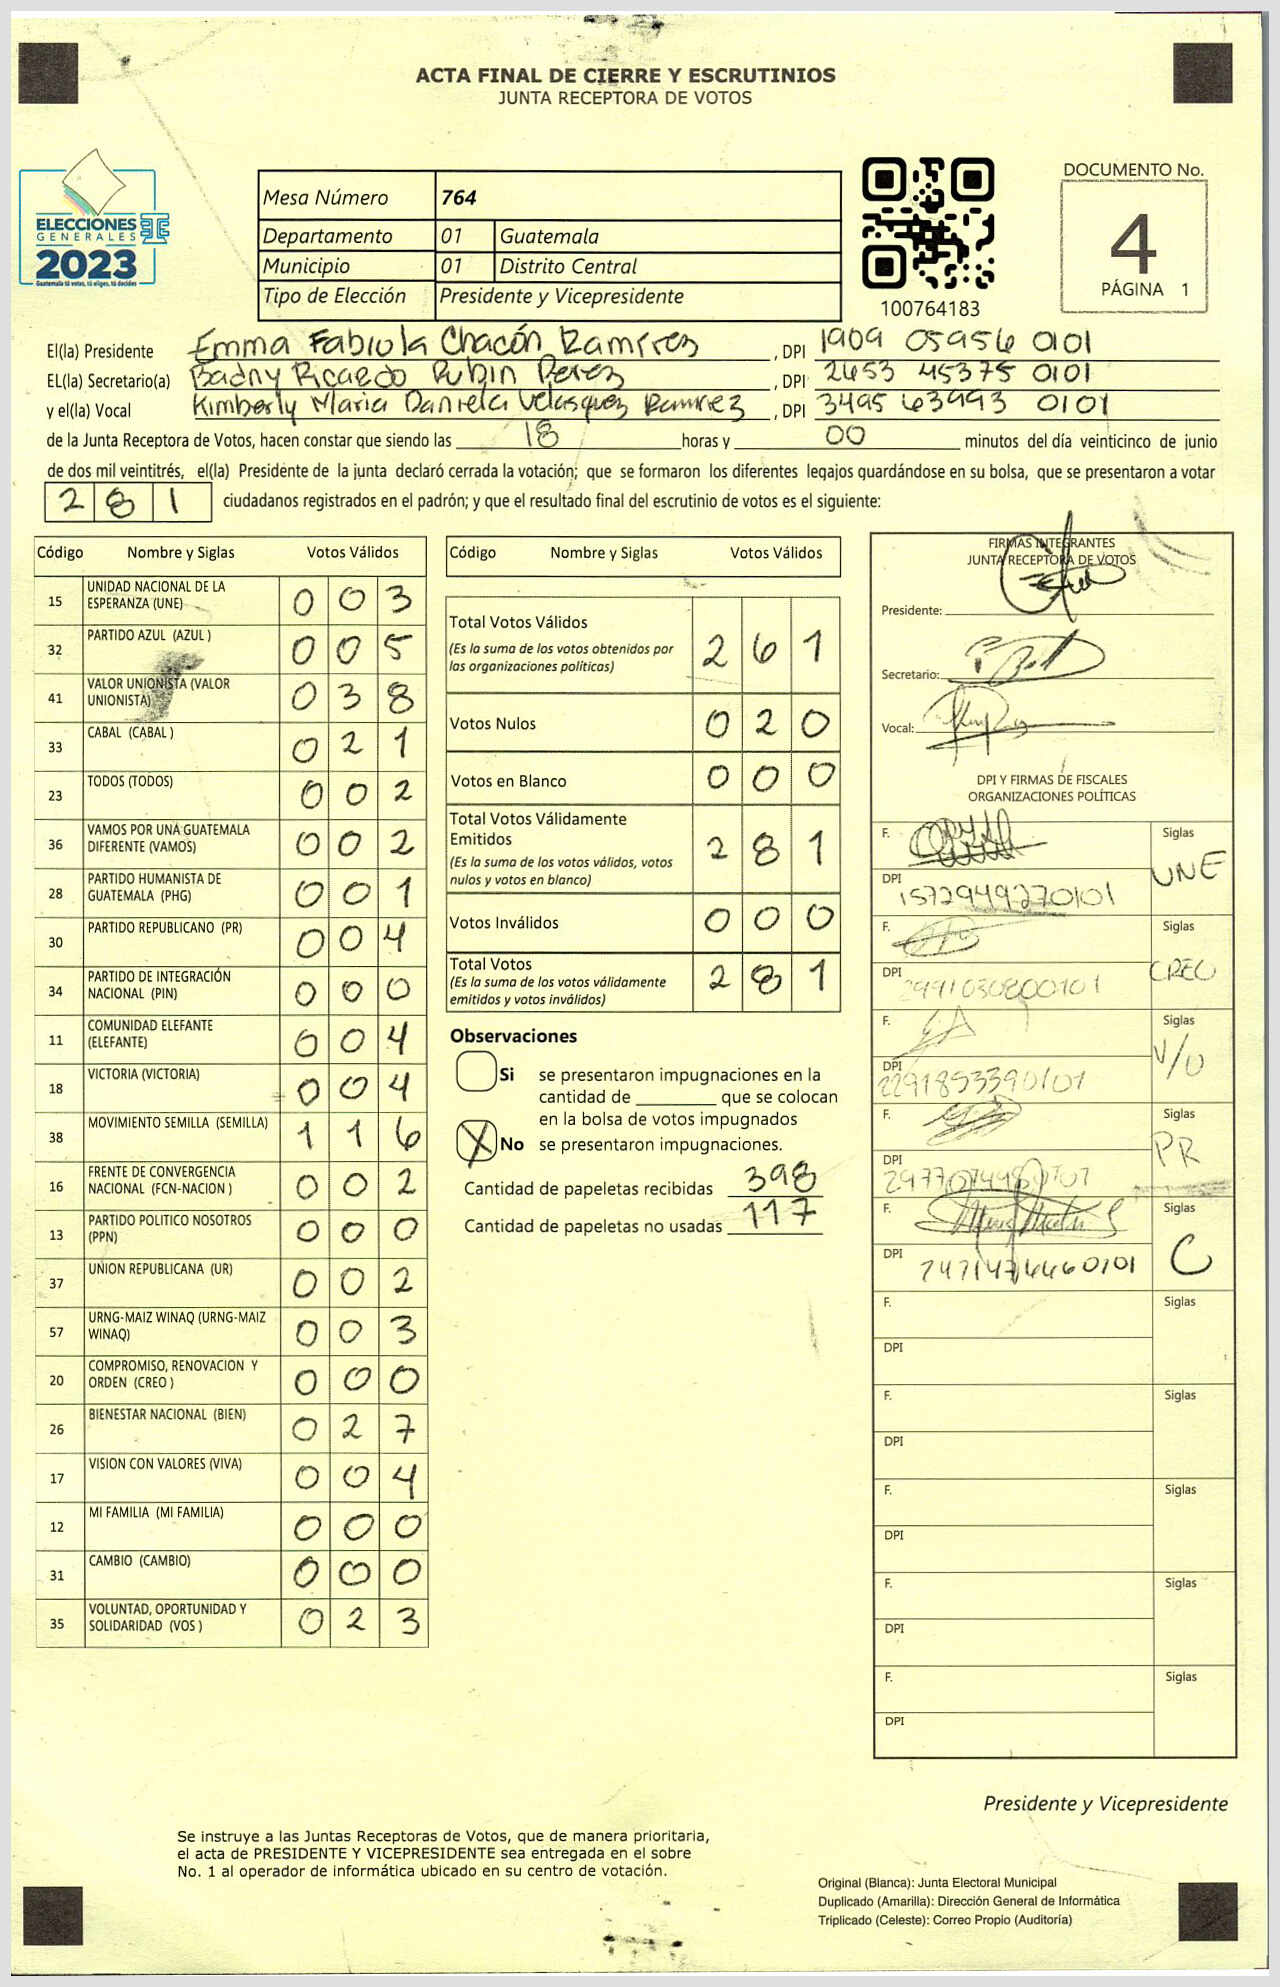 ACTA FINAL DE CIERRE Y ESCRUTINIOS
JUNTA RECEPTORA DE VOTOS
ELECCIONES
GENERALES
2023
Guatemala tú votas, tú eliges, tú decides
Mesa Número 764
Departamento 01 Guatemala
Municipio 01 Distrito Central
Tipo de Elección Presidente y Vicepresidente
100764183
DOCUMENTO No.
4
PÁGINA 1
El(la) Presidente Emma Fabiola Chacón Ramírez, DPI 1909 05956 0101
EL(la) Secretario(a) Badny Ricardo Rubin Perez, DPI 2653 45375 0101
y el(la) Vocal Kimberly Maria Daniela Velasquez Ramirez, DPI 3495 63993 0101
de la Junta Receptora de Votos, hacen constar que siendo las 18 horas y 00 minutos del día veinticinco de junio
de dos mil veintitrés, el(la) Presidente de la junta declaró cerrada la votación; que se formaron los diferentes legajos quardándose en su bolsa, que se presentaron a votar
281 ciudadanos registrados en el padrón; y que el resultado final del escrutinio de votos es el siguiente:
Código Nombre y Siglas Votos Válidos
15 UNIDAD NACIONAL DE LA ESPERANZA (UNE) 0 0 3
32 PARTIDO AZUL (AZUL ) 0 0 5
41 VALOR UNIONISTA (VALOR UNIONISTA) 0 3 8
33 CABAL (CABAL ) 0 2 1
23 TODOS (TODOS) 0 0 2
36 VAMOS POR UNA GUATEMALA DIFERENTE (VAMOS) 0 0 2
28 PARTIDO HUMANISTA DE GUATEMALA (PHG) 0 0 1
30 PARTIDO REPUBLICANO (PR) 0 0 4
34 PARTIDO DE INTEGRACIÓN NACIONAL (PIN) 0 0 0
11 COMUNIDAD ELEFANTE (ELEFANTE) 0 0 4
18 VICTORIA (VICTORIA) 0 0 4
38 MOVIMIENTO SEMILLA (SEMILLA) 1 1 6
16 FRENTE DE CONVERGENCIA NACIONAL (FCN-NACION ) 0 0 2
13 PARTIDO POLITICO NOSOTROS (PPN) 0 0 0
37 UNION REPUBLICANA (UR) 0 0 2
57 URNG-MAIZ WINAQ (URNG-MAIZ WINAQ) 0 0 3
20 COMPROMISO, RENOVACION Y ORDEN (CREO ) 0 0 0
26 BIENESTAR NACIONAL (BIEN) 0 2 7
17 VISION CON VALORES (VIVA) 0 0 4
12 MI FAMILIA (MI FAMILIA) 0 0 0
31 CAMBIO (CAMBIO) 0 0 0
35 VOLUNTAD, OPORTUNIDAD Y SOLIDARIDAD (VOS ) 0 2 3
Código Nombre y Siglas Votos Válidos
Total Votos Válidos 2 6 1
(Es la suma de los votos obtenidos por
las organizaciones políticas)
Votos Nulos 0 2 0
Votos en Blanco 0 0 0
Total Votos Válidamente
Emitidos 2 8 1
(Es la suma de los votos válidos, votos
nulos y votos en blanco)
Votos Inválidos 0 0 0
Total Votos 2 8 1
(Es la suma de los votos válidamente
emitidos y votos inválidos)
Observaciones
Si se presentaron impugnaciones en la
cantidad de ________ que se colocan
en la bolsa de votos impugnados
X No se presentaron impugnaciones.
Cantidad de papeletas recibidas 398
Cantidad de papeletas no usadas 117
FIRMAS INTEGRANTES
JUNTA RECEPTORA DE VOTOS
Presidente:
Secretario:
Vocal:
DPI Y FIRMAS DE FISCALES
ORGANIZACIONES POLÍTICAS
F. Siglas UNE
DPI 1572949270101
F. Siglas CREO
DPI 2991030800101
F. Siglas V/U
DPI 2291853390101
F. Siglas PR
DPI
F. Siglas C
DPI
F. Siglas
DPI
F. Siglas
DPI
F. Siglas
DPI
F. Siglas
DPI
F. Siglas
DPI
Presidente y Vicepresidente
Se instruye a las Juntas Receptoras de Votos, que de manera prioritaria,
el acta de PRESIDENTE Y VICEPRESIDENTE sea entregada en el sobre
No. 1 al operador de informática ubicado en su centro de votación.
Original (Blanca): Junta Electoral Municipal
Duplicado (Amarilla): Dirección General de Informática
Triplicado (Celeste): Correo Propio (Auditoría)